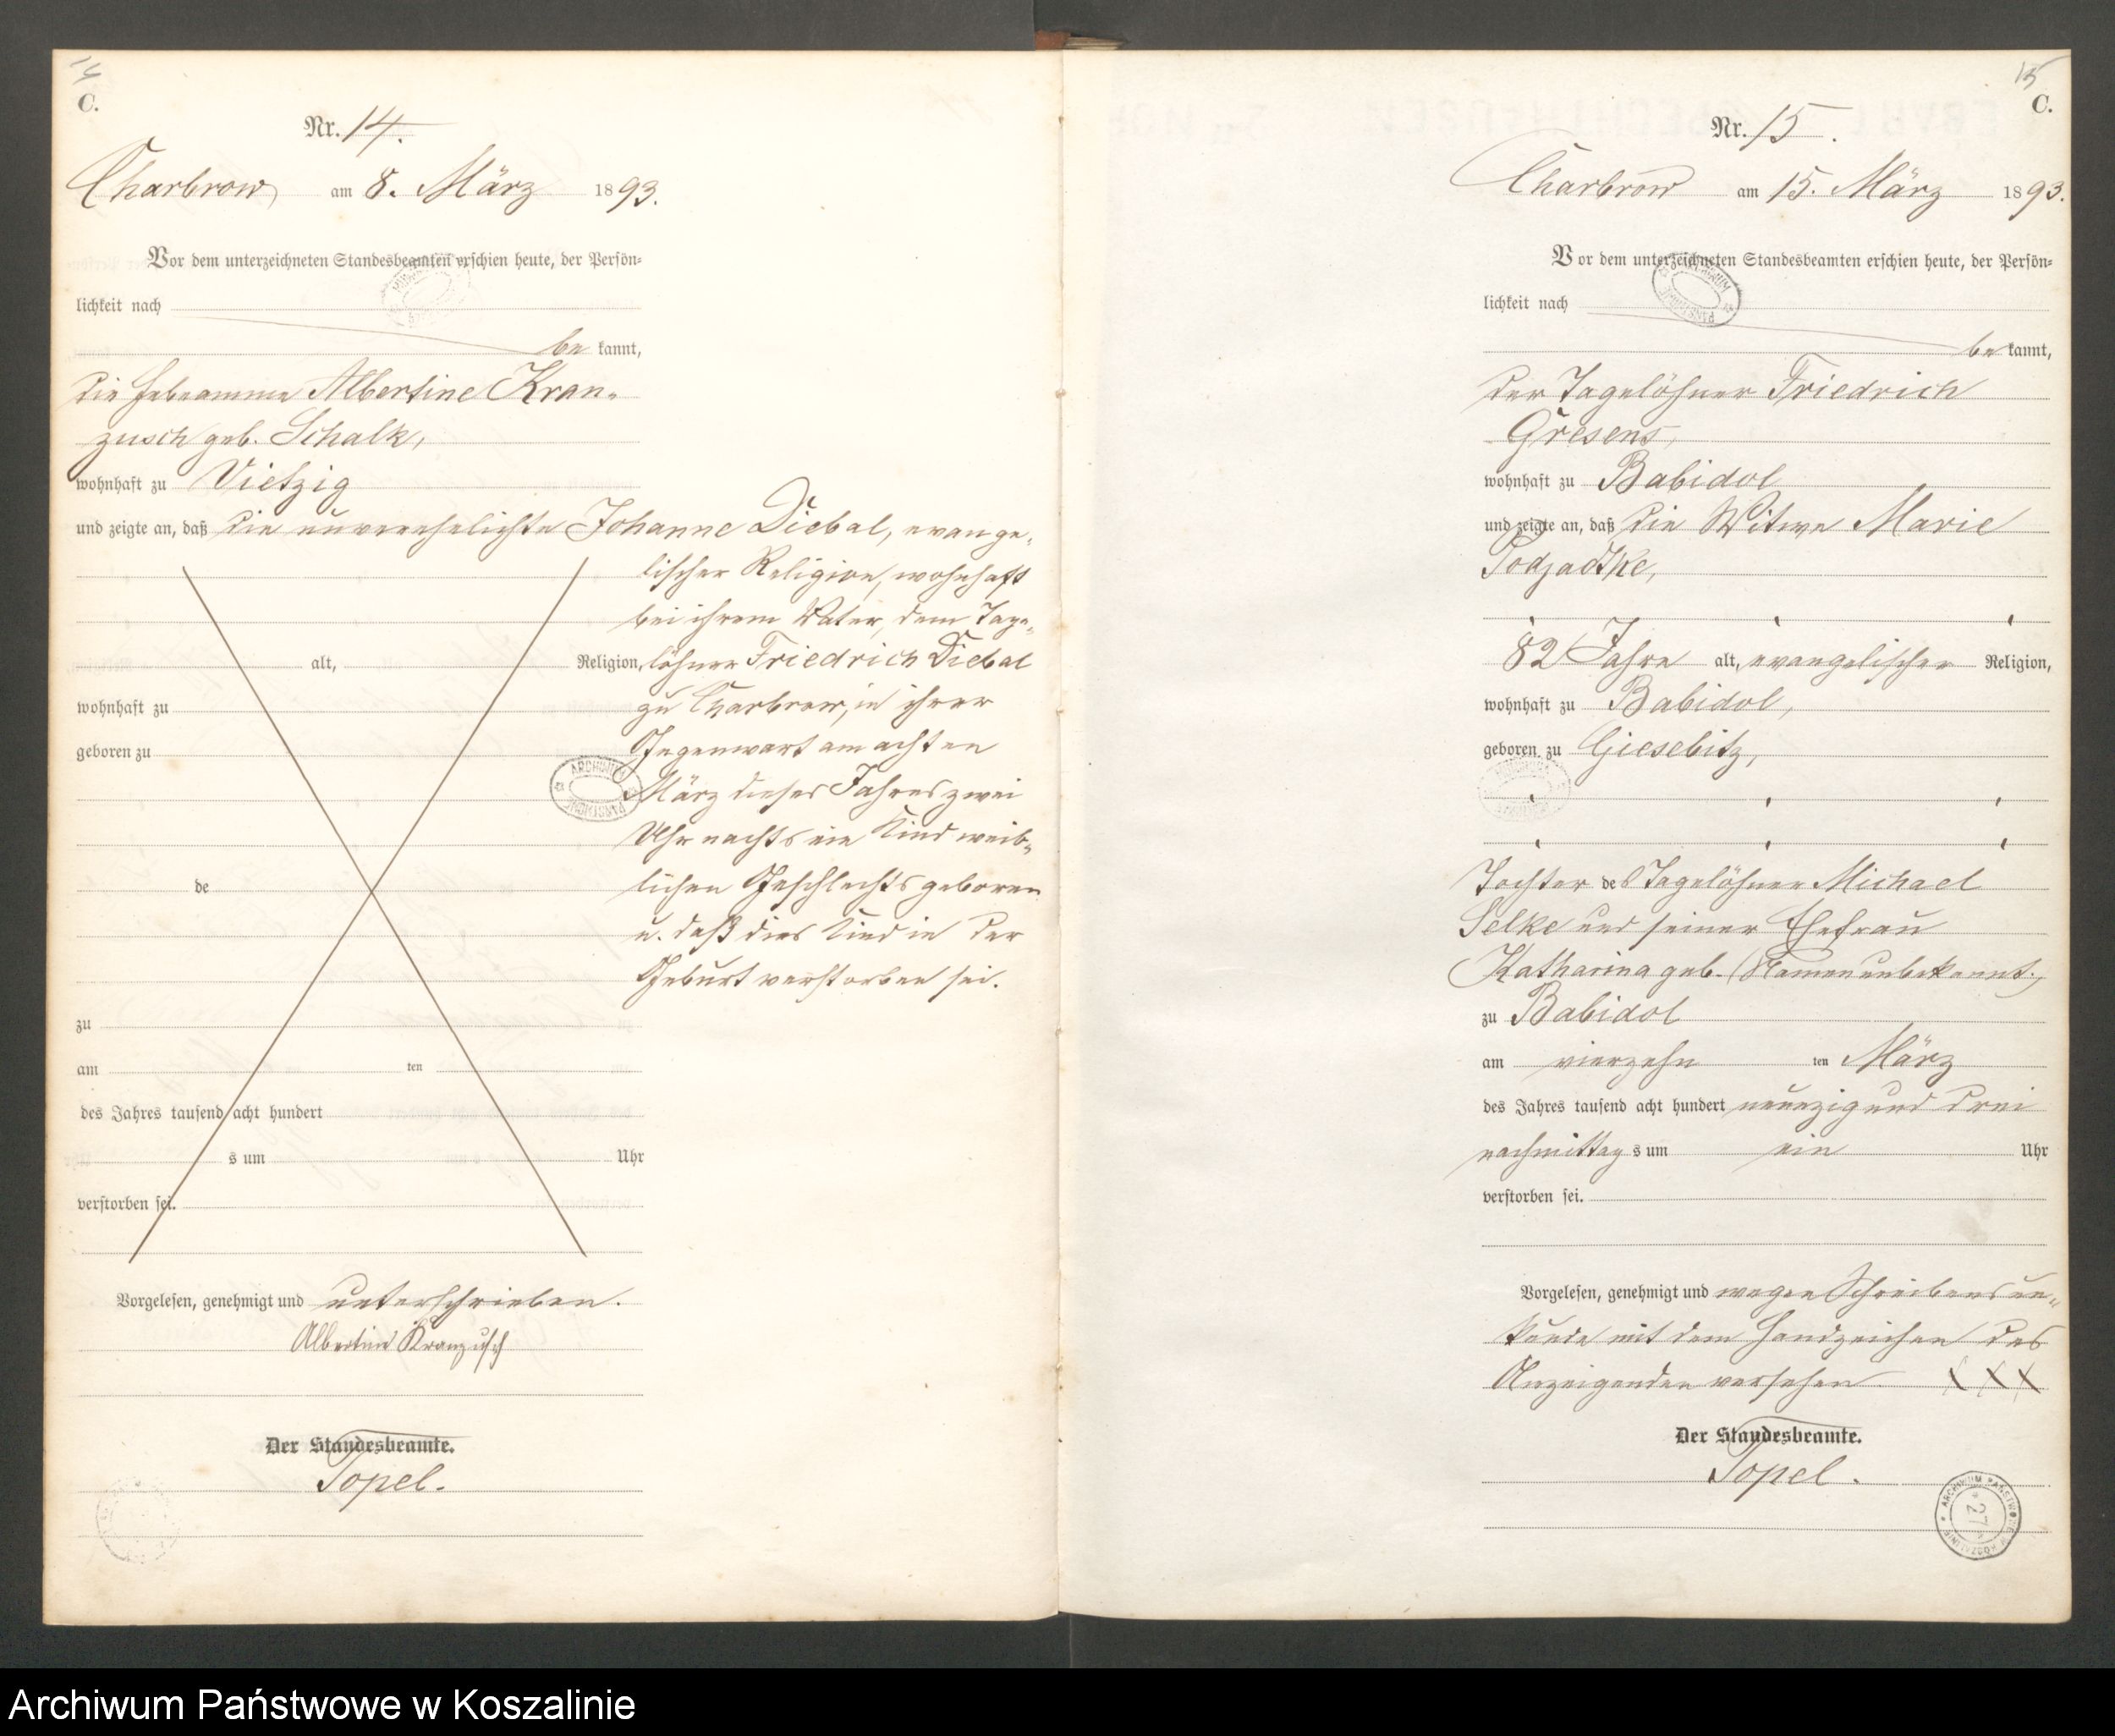 14
C.
Nr. 14.
Charbrow am 8. März 1893.
Vor dem unterzeichneten Standesbeamten erschien heute, der Persön-
lichkeit nach
be kannt,
die Hebeamme Albertine Kran-
zusch geb. Schalk,
wohnhaft zu Vietzig
und zeigte an, daß die unverehelichte Johanne Diebal, evange-
lischer Religion, wohnhaft
bei ihrem Vater, dem Tage-
alt, Religion, löhner Friedrich Diebal
wohnhaft zu zu Charbrow, in ihrer
geboren zu Gegenwart am achten
März dieses Jahres zwei
Uhr nachts ein Kind weib-
de lichen Geschlechts geboren
u. daß dies Kind in der
Geburt verstorben sei.
zu
am ten
des Jahres tausend acht hundert
s um Uhr
verstorben sei.
Vorgelesen, genehmigt und unterschrieben.
Albertine Kranzusch
Der Standesbeamte.
Topel.
ARCHIWUM PAŃSTWOWE
15
C.
Nr. 15.
Charbrow am 15. März 1893.
Vor dem unterzeichneten Standesbeamten erschien heute, der Persön-
lichkeit nach
be kannt,
der Tagelöhner Friedrich
Gresens,
wohnhaft zu Babidol
und zeigte an, daß die Witwe Marie
Podjadtke,
82 Jahre alt, evangelischer Religion,
wohnhaft zu Babidol,
geboren zu Giesebitz,
Tochter des Tagelöhner Michael
Selke und seiner Ehefrau
Katharina geb. (Namen unbekannt.)
zu Babidol
am vierzehn ten März
des Jahres tausend acht hundert neunzig und drei
nachmittag s um ein Uhr
verstorben sei.
Vorgelesen, genehmigt und wegen Schreibensun-
kunde mit dem Handzeichen des
Anzeigenden versehen XXX
Der Standesbeamte.
Topel.
ARCHIWUM PAŃSTWOWE W KOSZALINIE
27
Archiwum Państwowe w Koszalinie